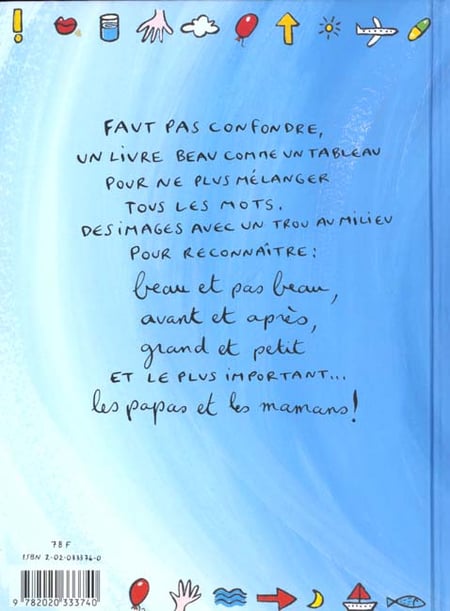 FAUT PAS CONFONDRE,
UN LIVRE BEAU COMME UN TABLEAU
POUR NE PLUS MÉLANGER
TOUS LES MOTS.
DES IMAGES AVEC UN TROU AU MILIEU
POUR RECONNAÎTRE :
beau et pas beau,
avant et après,
grand et petit
ET LE PLUS IMPORTANT...
les papas et les mamans !
78 F
ISBN 2-02-033374-0
9 782020 333740